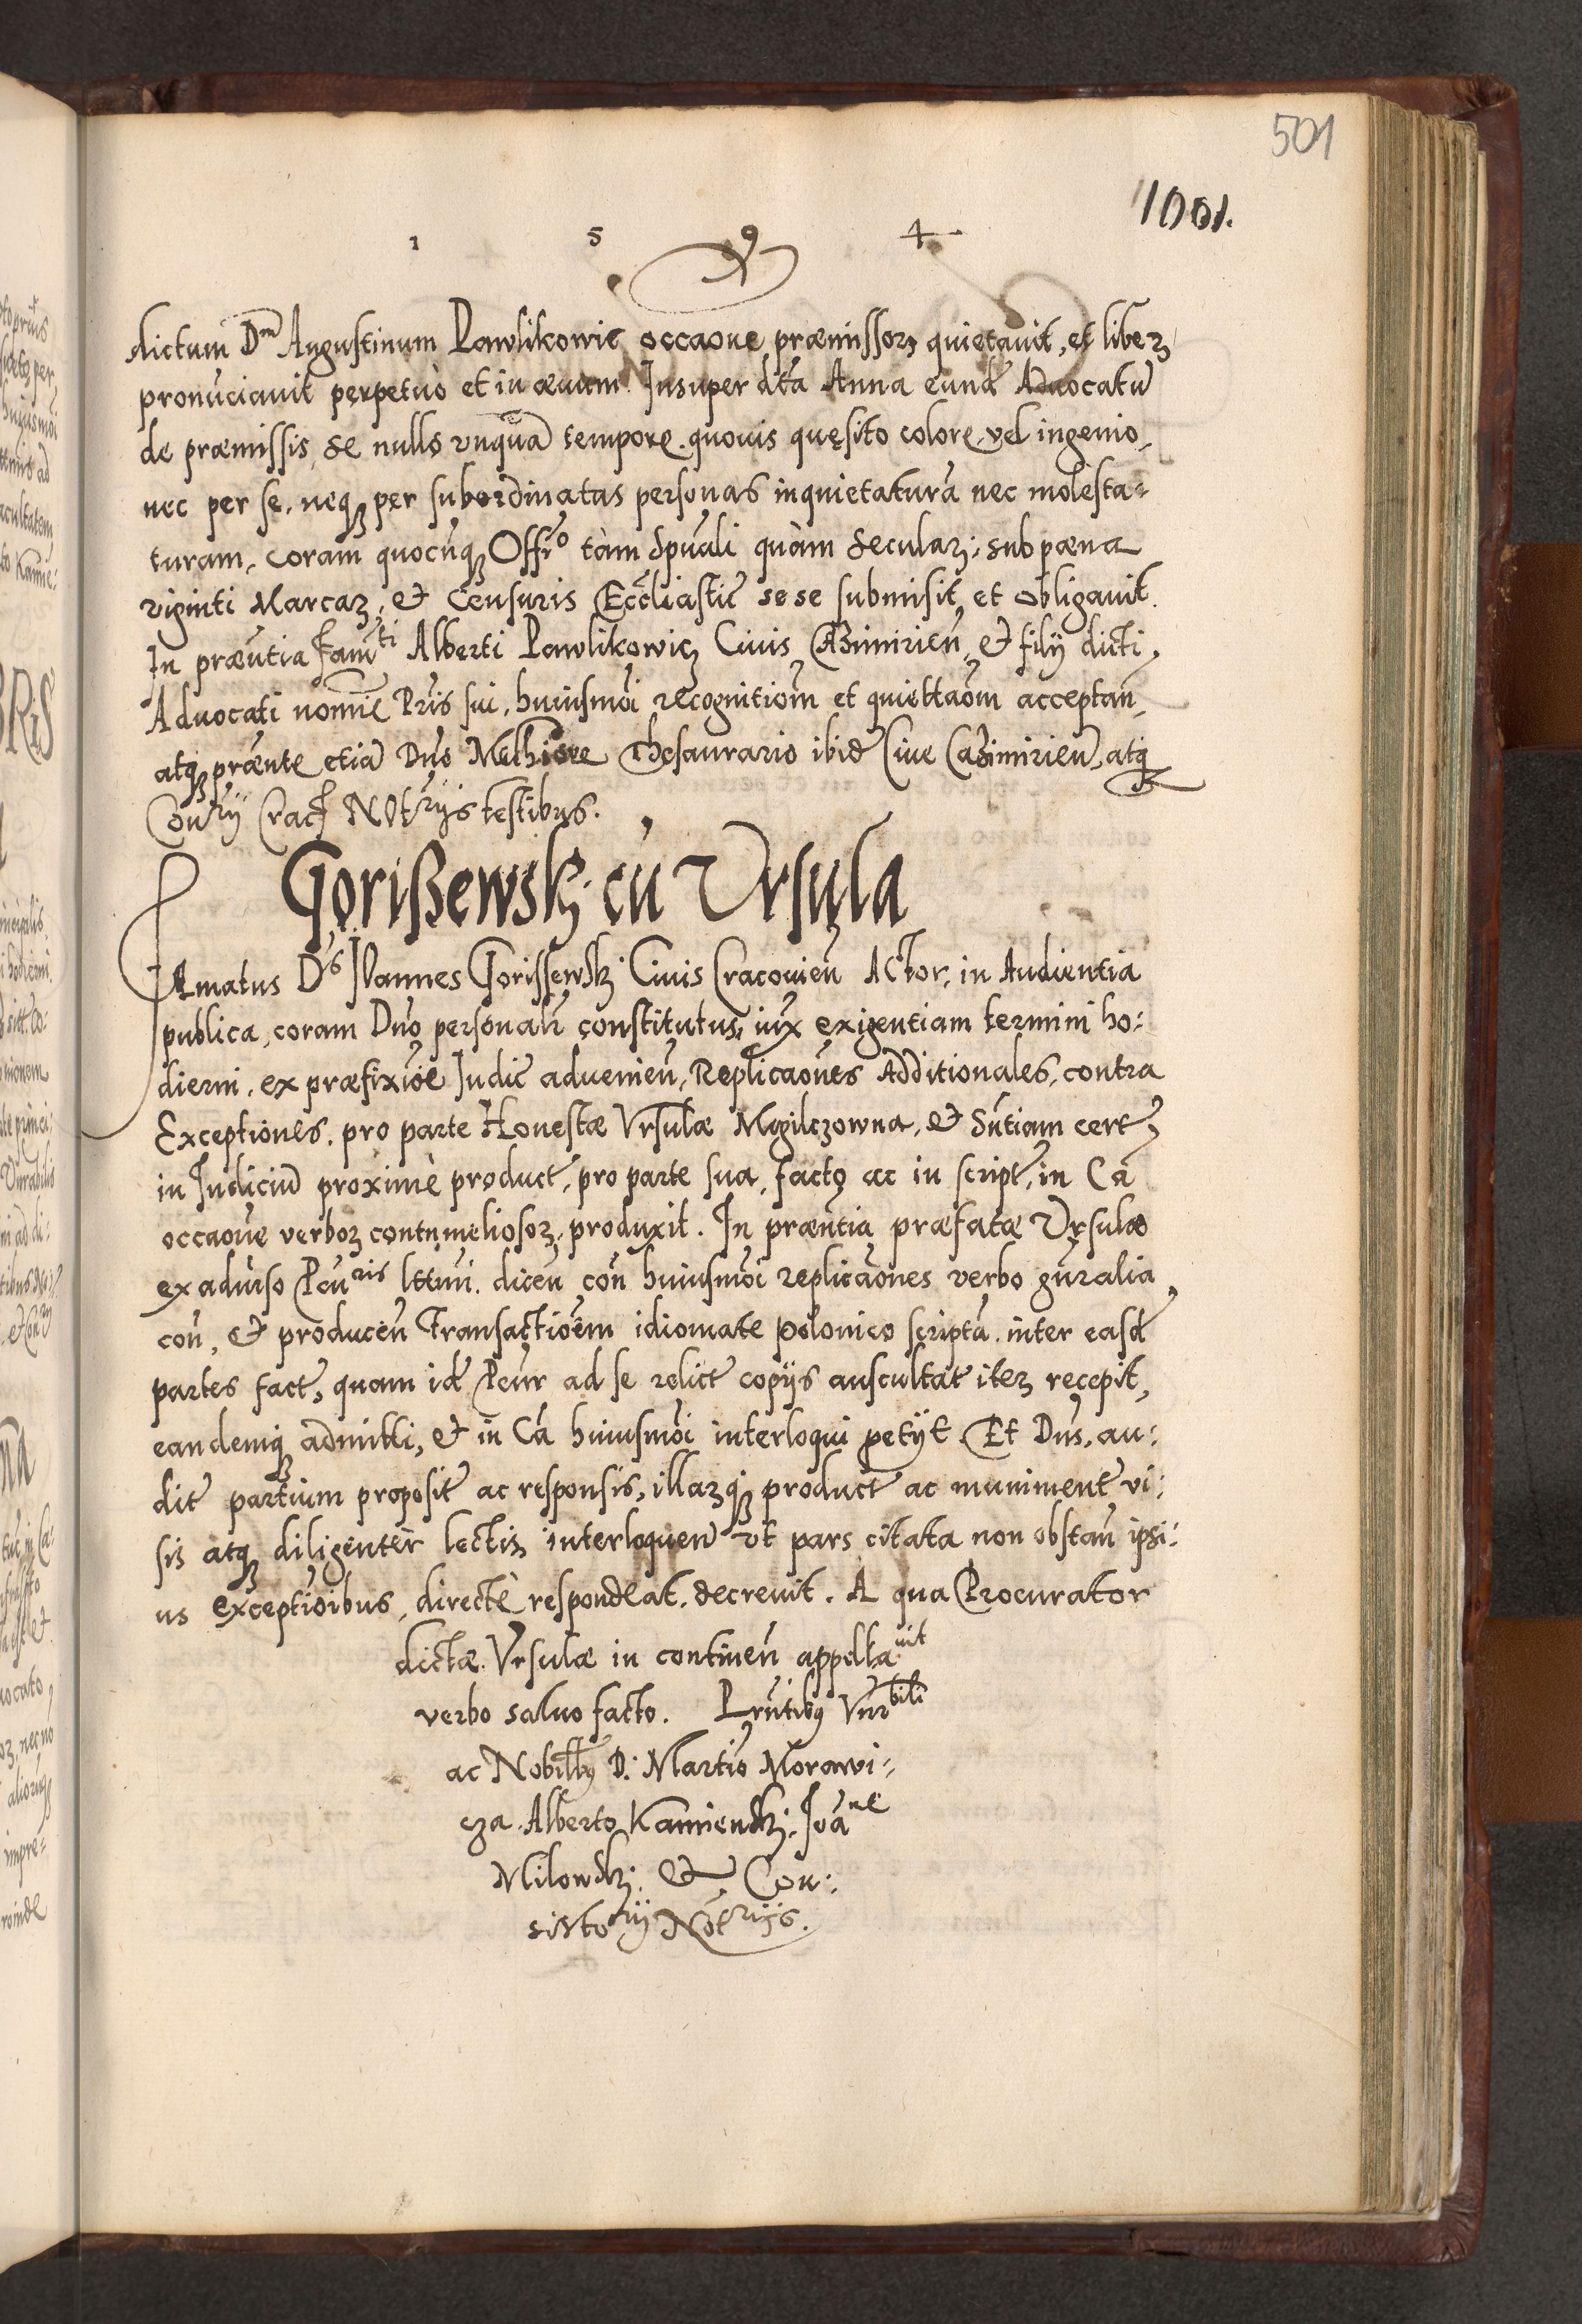 501
1001.
1 5 9 4
dictum Dm̄ Augustinum Pawlikowic occaōne præmissorꝫ quietauit, et liberꝫ
pronūciauit perpetuò et in æuum. Insuper dt̃a Anna eund̃ Aduocatū
de præmissis, se nullo vnquā tempore, quouis quęsito colore, vel ingenio,
nec per se, neqꝫ per subordinatas personas inquietaturā nec molesta-
turam, coram quocūqꝫ Offi͠o tàm Spūali quàm Secularꝫ: sub pæna
viginti Marcarꝫ, et Censuris Eccl̃iastic̃ sese submisit et obligauit.
In præn̄tia Fam̄ti Alberti Pawlikowicz Ciuis Casimirien̄, et filij dicti
Aduocati nomīe Pr̃is sui, huiusmōi recognitiōm et quiettaōm acceptan̄,
atqꝫ præn̄te etiā Dn̄o Melhiore Thesaurario ibid̃ Ciue Casimirien̄, atqꝫ
Con̄rij Crac̃ Not̄rijs testibus.
Gorißewskj cū Vrsula
Famatus D͠s Ioannes Gorissewskj Ciuis Cracouien̄ Actor, in Audientia
publica, coram Dn̄o personalr̃ constitutus, iux̃ exigentiam termini ho:
dierni, ex præfixiōe Iudic̃ aduenien̄, Replicaōnes Additionales, contra
Exceptiones, pro parte Honestæ Vrsulæ Mogilczowna, et Sn̄tiam cert̃,
in Iudiciū proximè product̃, pro parte sua, facto ac in script̃, in Cā
occaōne verborꝫ contumeliosorꝫ, produxit. In præn̄tia præfatæ Vrsulæ
ex aduerso Pcūris lt̃tmi. dicen̄ con̄ huiusmōi replicaōnes verbo gn̄ralia
con̄, et producen̄ Transactiōem idiomate polonico scriptā inter easd̃
partes fact̃, quam id̃ Pcūr ad se relict̃ copijs auscultat̃ iterꝫ recepit,
eandemqꝫ admitti, et in Cā huiusmōi interloqui petijt. Et Dn̄s, au:
dit̃ partium proposit̃ ac responsis, illarꝫqꝫ product̃ ac muniment̃ vi:
sis atqꝫ diligenter lectis, interloquen̄ vt pars citata non obstan̄ ipsi:
us exceptioībus, directè respondeat, decreuit. A qua Procurator
dictæ Vrsulæ in continen̄ appellauit
verbo saluo facto. Prn̄tibꝰ Vnrbili
ac Nobilibꝰ D. Martīo Morawi:
cza Alberto Kamienskj, Ioāne
Milowskj, et Con:
sistorij Not̄rijs.